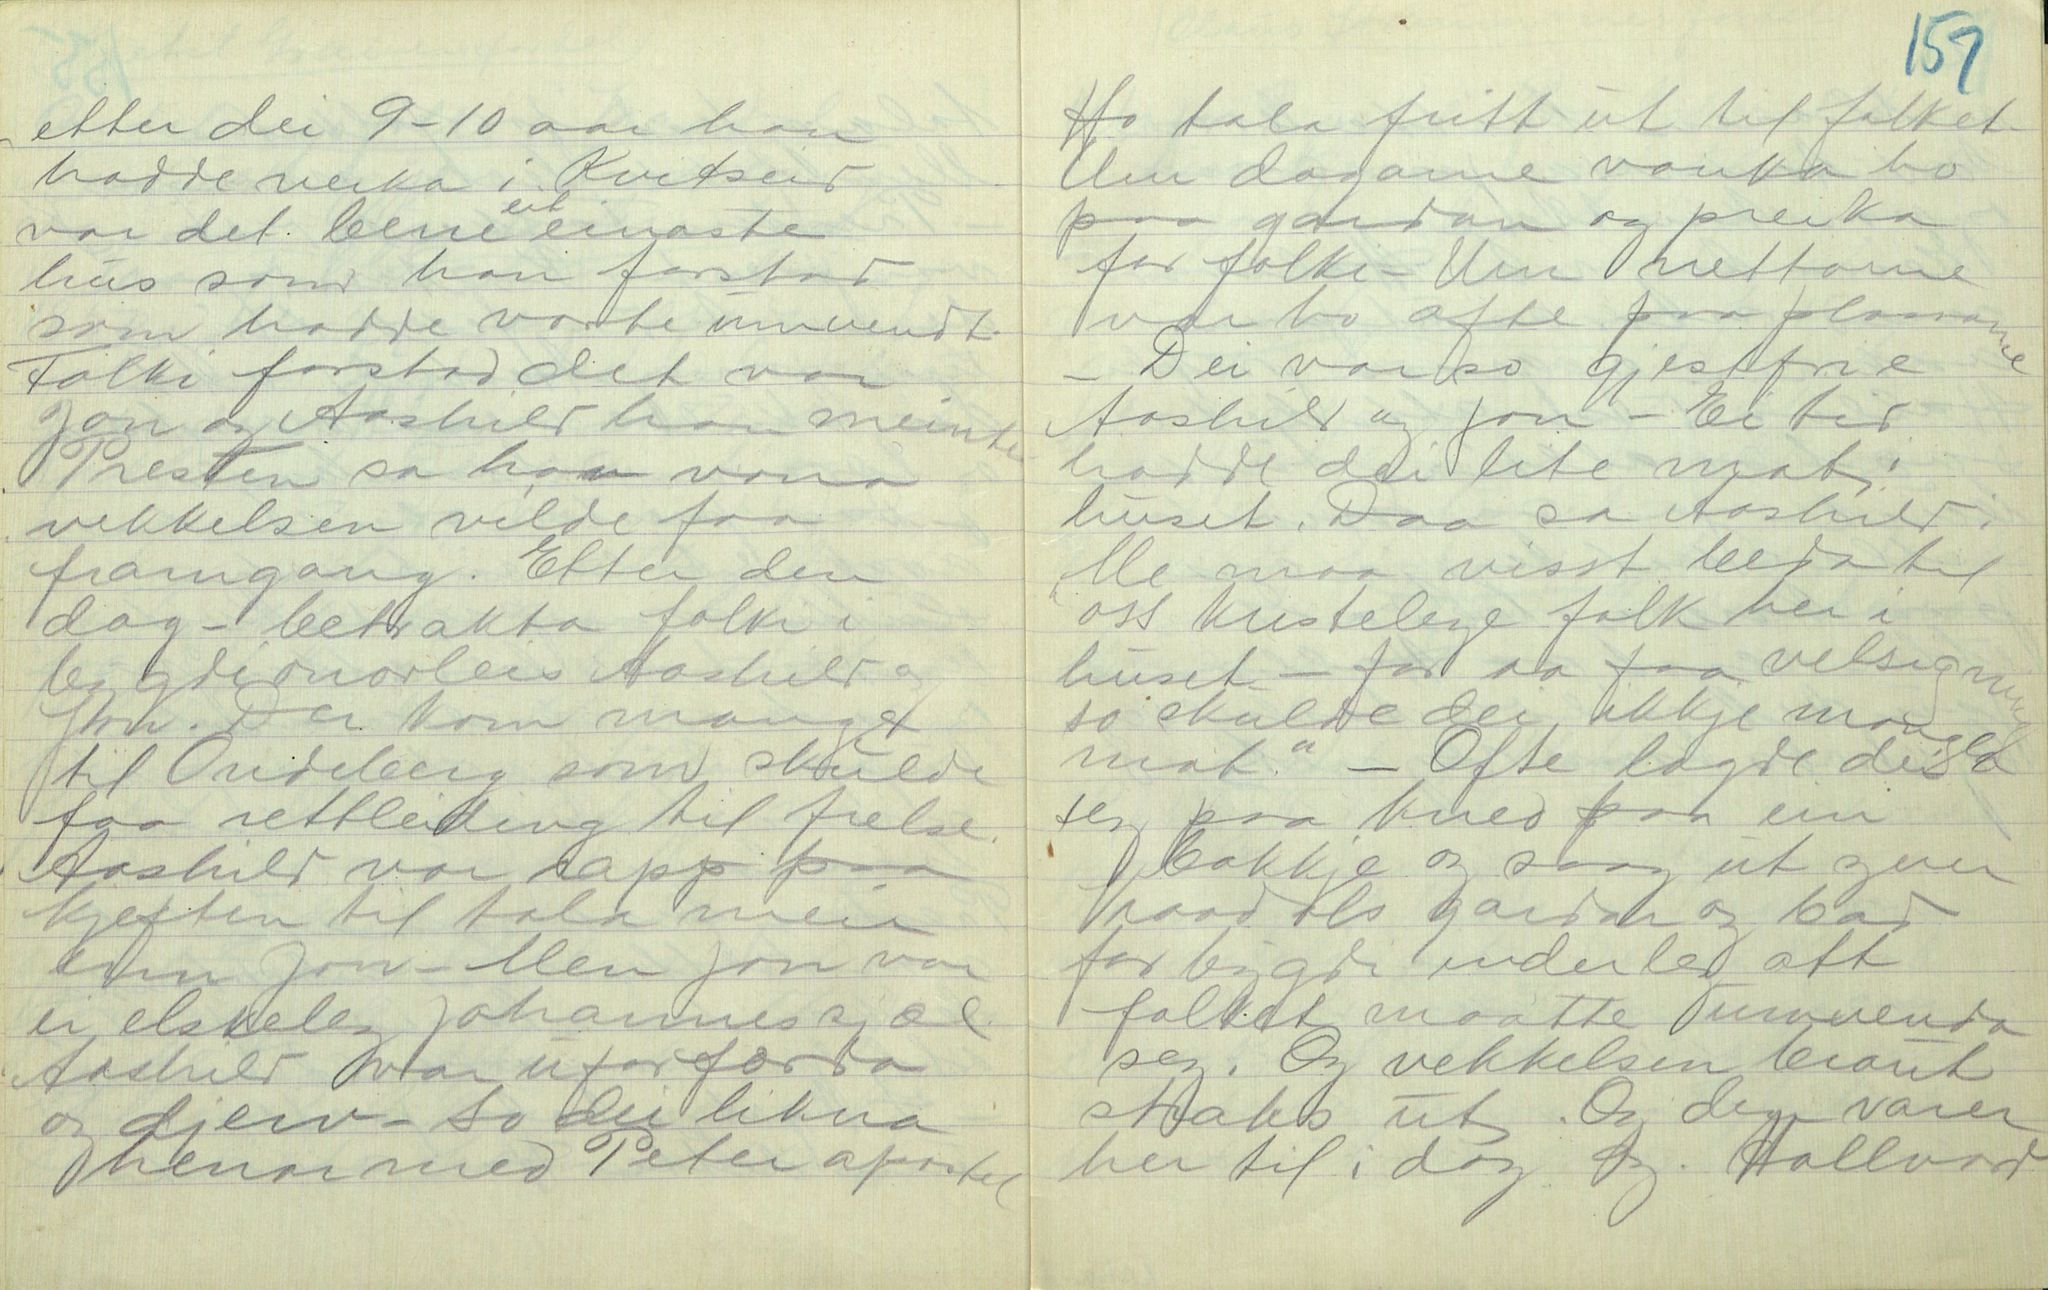 etter dei 9-10 aar han
hadde verka i Kvitseid
var det berre eit einaste
hus som han forstod
som hadde vorte umvendt.
Folki forstod det var
Jon og Aashild han meinte
Presten sa han vona
vekkelsen vilde faa
framgang. Etter den
dag - betrakta folki i
bygdi onorleis Aashild og
Jon. Der kom mange
til Ondeberg som skulde
faa rettleiding til frelse.
Aashild var rapp paa
kjeften til tala meir
enn Jon - Men Jon var
ei elskeleg johannessjæl
Aashild var uforfærda
og djerv - So dei likna
henar med Peter apostel
157
Ho tala fritt ut til folket.
Um dagarne vanka ho
paa gardan og preika
for folki - Um nettarne
var ho ofte paa plassarne
- Dei var so gjestfrie
Aashild og Jon - Ei tid
hadde dei lite mat i
huset. Daa sa Aashild:
"Me maa visst beda til
oss kristelege folk her i
huset - for aa faa velsigning
so skulde dei ikkje mangla
mat." - Ofte lagde dei
seg paa kned paa ein
bakkje og saag ut yver
gardan og bad
for bygdi inderleg att
folket maatte umvenda
seg. Og vekkelsen braut
straks ut. Og den varer
her til i dag. Og. Hallvard